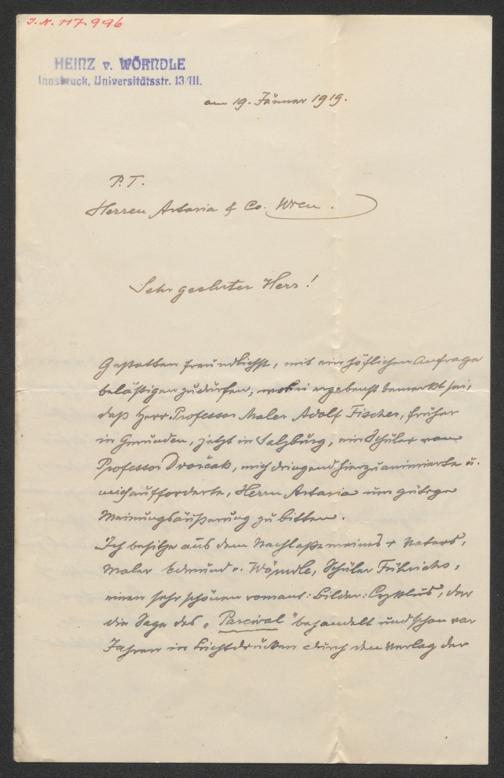 I.N. 117.996
HEINZ v. WÖRNDLE
Innsbruck, Universitätsstr. 13/III.
am 19. Jänner 1919.
P.T.
Herren Artaria & Co. Wien.
Sehr geehrter Herr!
Gestatten freundlichst, mit ein höflichen Anfrage
belästigen zu dürfen, wobei ergebenst bemerkt sei,
daß Herr Professor Maler Adolf Fischer, früher
in Gmunden, jetzt in Salzburg, ein Schüler von
Professor Dvořak, mich dringend hierzu animierte u.
mich aufforderte, Herrn Artaria um gütige
Meinungsäußerung zu bitten.
Ich besitze aus dem Nachlaße meines † Vaters,
Maler Edmund v. Wörndle, Schüler Führichs,
einen sehr schönen romant: Bilder-Cyklus, der
die Sage des „Parcival" behandelt und schon vor
Jahren in Lichtdrucken durch den Verlag der